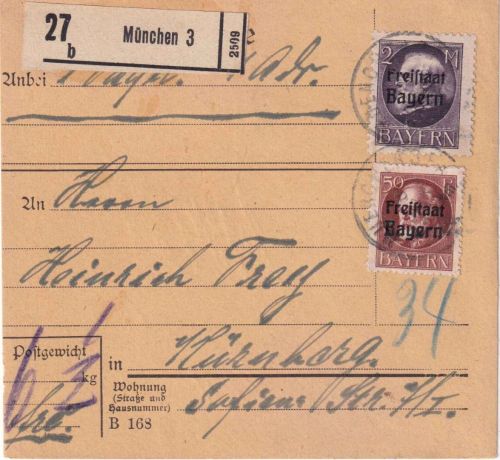 27 b München 3 2509
Anbei 1 Adr.
2 M
Freistaat
Bayern
BAYERN
An Herrn
50
Freistaat
Bayern
BAYERN
Heinrich Frey
34
Postgewicht
kg
in Nürnberg.
Wohnung
(Straße und
Hausnummer)
B 168